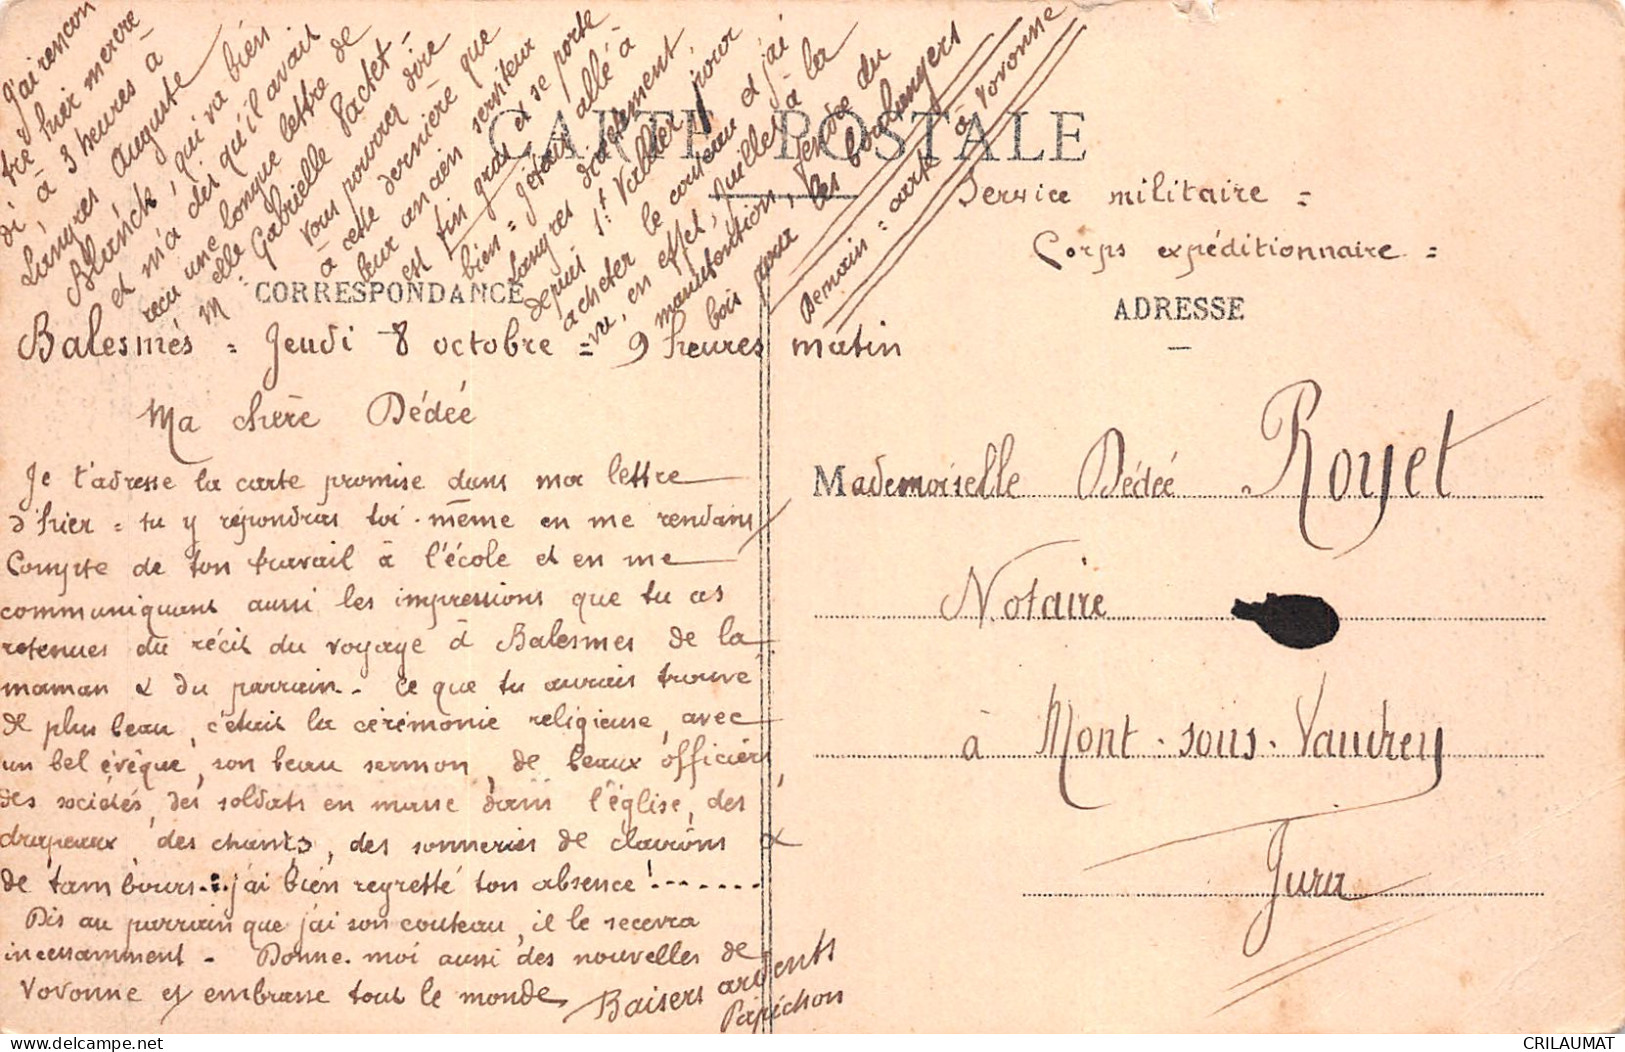 J'ai rencon
tré hier mercre
di à 3 heures à
Langres Auguste
Blanck, qui va bien
et m'a dit qu'il avait
recu une longue lettre de
Melle Gabrielle Pachet -
Vous pouvez dire
à cette dernière que
leur ancien serviteur
est fin gras et se porte
bien = J'étais allé à
Langres directement,
depuis St Vallier, pour
acheter le couteau et j'ai
vu, en effet, à la
manutention, du
bois pour les boulangers
Demain = carte à Vovonne
CARTE POSTALE
Service militaire =
Corps expéditionnaire =
CORRESPONDANCE
ADRESSE
Balesmes = Jeudi 8 octobre = 9 heures matin
Ma chère Dédée
Je t'adresse la carte promise dans ma lettre
d'hier = tu y répondras toi-même en me rendant
Compte de ton travail à l'école et en me
communiquant aussi les impressions que tu as
retenues du récit du voyage à Balesmes de la
maman & du parrain - Ce que tu aurais trouvé
de plus beau, c'était la cérémonie religieuse, avec
un bel évêque, son beau sermon, de beaux officiers,
des sociétés, des soldats en masse dans l'église, des
drapeaux, des chants, des sonneries de clairons &
de tambours... j'ai bien regretté ton absence !.......
Dis au parrain que j'ai son couteau, il le recevra
incessamment - Donne-moi aussi des nouvelles de
Vovonne et embrasse tout le monde
Baisers ardents
Papichon
Mademoiselle Dédée Royet
Notaire
à Mont-sous-Vaudrey
Jura
CRILAUMAT